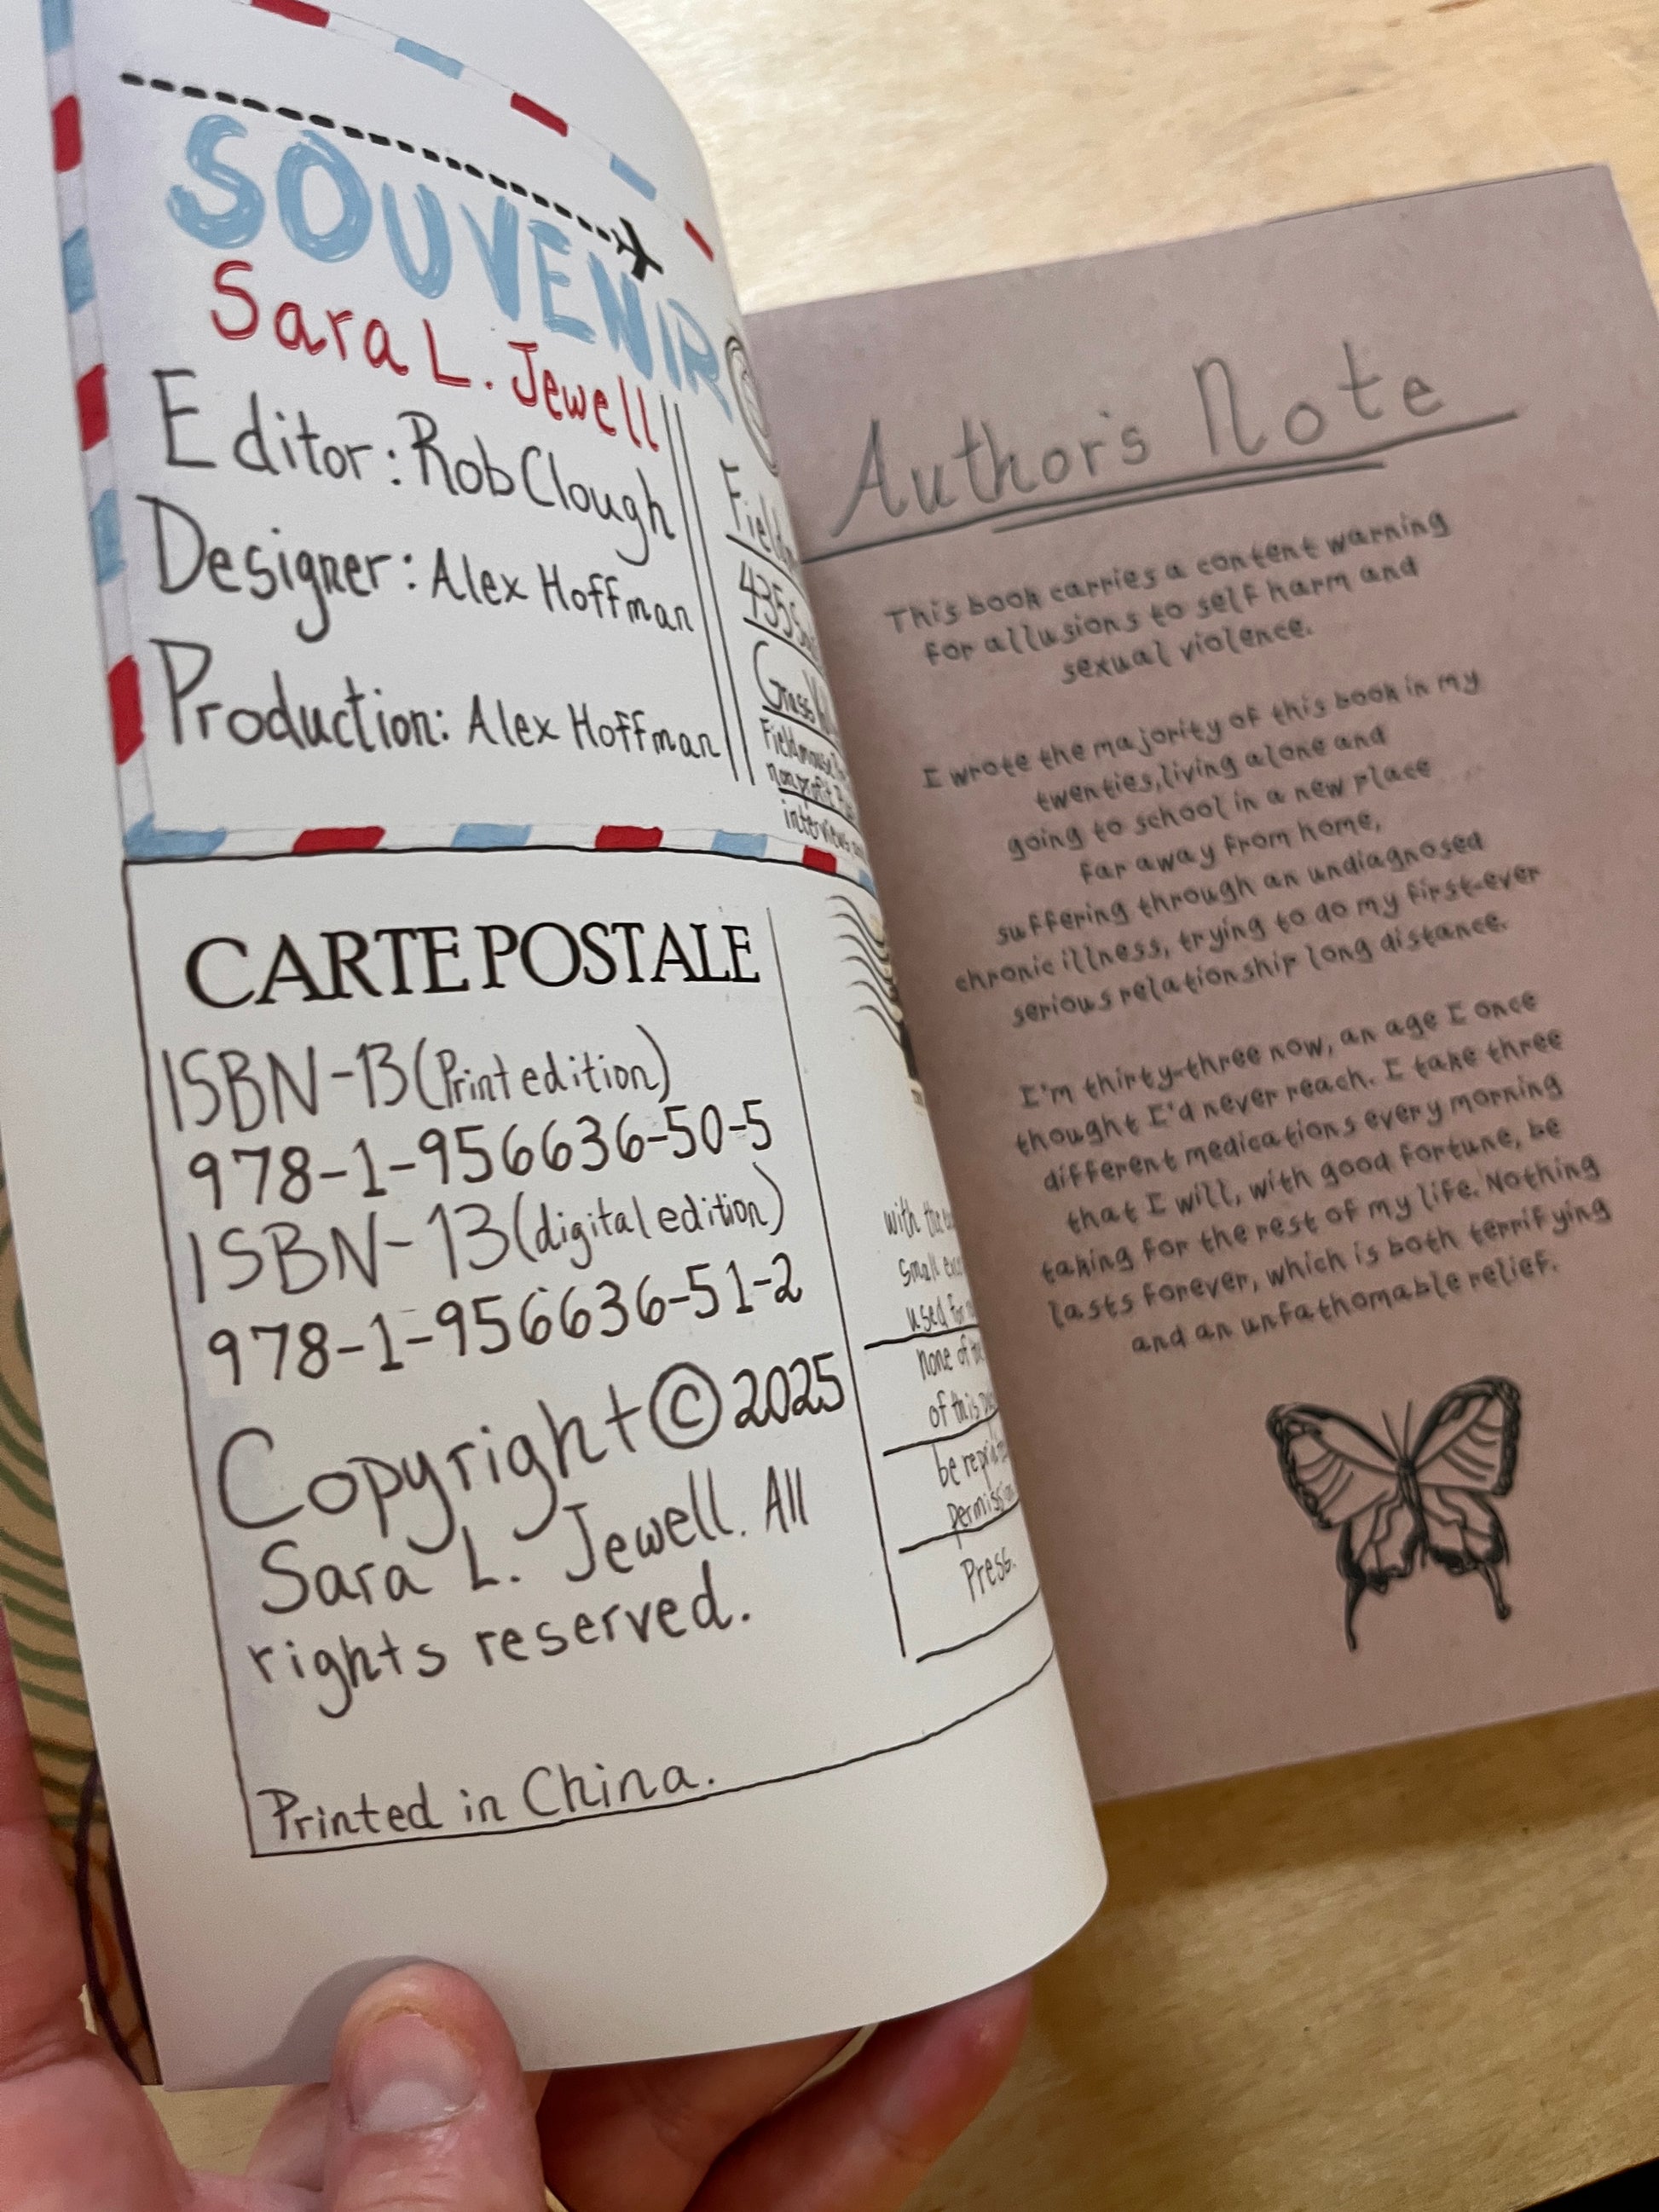 SOUVENIR
Sara L. Jewell
Editor: Rob Clough
Designer: Alex Hoffman
Production: Alex Hoffman
CARTE POSTALE
ISBN-13 (Print edition)
978-1-956636-50-5
ISBN-13 (digital edition)
978-1-956636-51-2
Copyright © 2025
Sara L. Jewell. All
rights reserved.
Printed in China.
435
nonprofit
interviews
with the
small
used for
none of
of this
be
Press.
Author's Note
This book carries a content warning
for allusions to self harm and
sexual violence.
I wrote the majority of this book in my
twenties, living alone and
going to school in a new place
far away from home,
suffering through an undiagnosed
chronic illness, trying to do my first-ever
serious relationship long distance.
I'm thirty-three now, an age I once
thought I'd never reach. I take three
different medications every morning
that I will, with good fortune, be
taking for the rest of my life. Nothing
lasts forever, which is both terrifying
and an unfathomable relief.